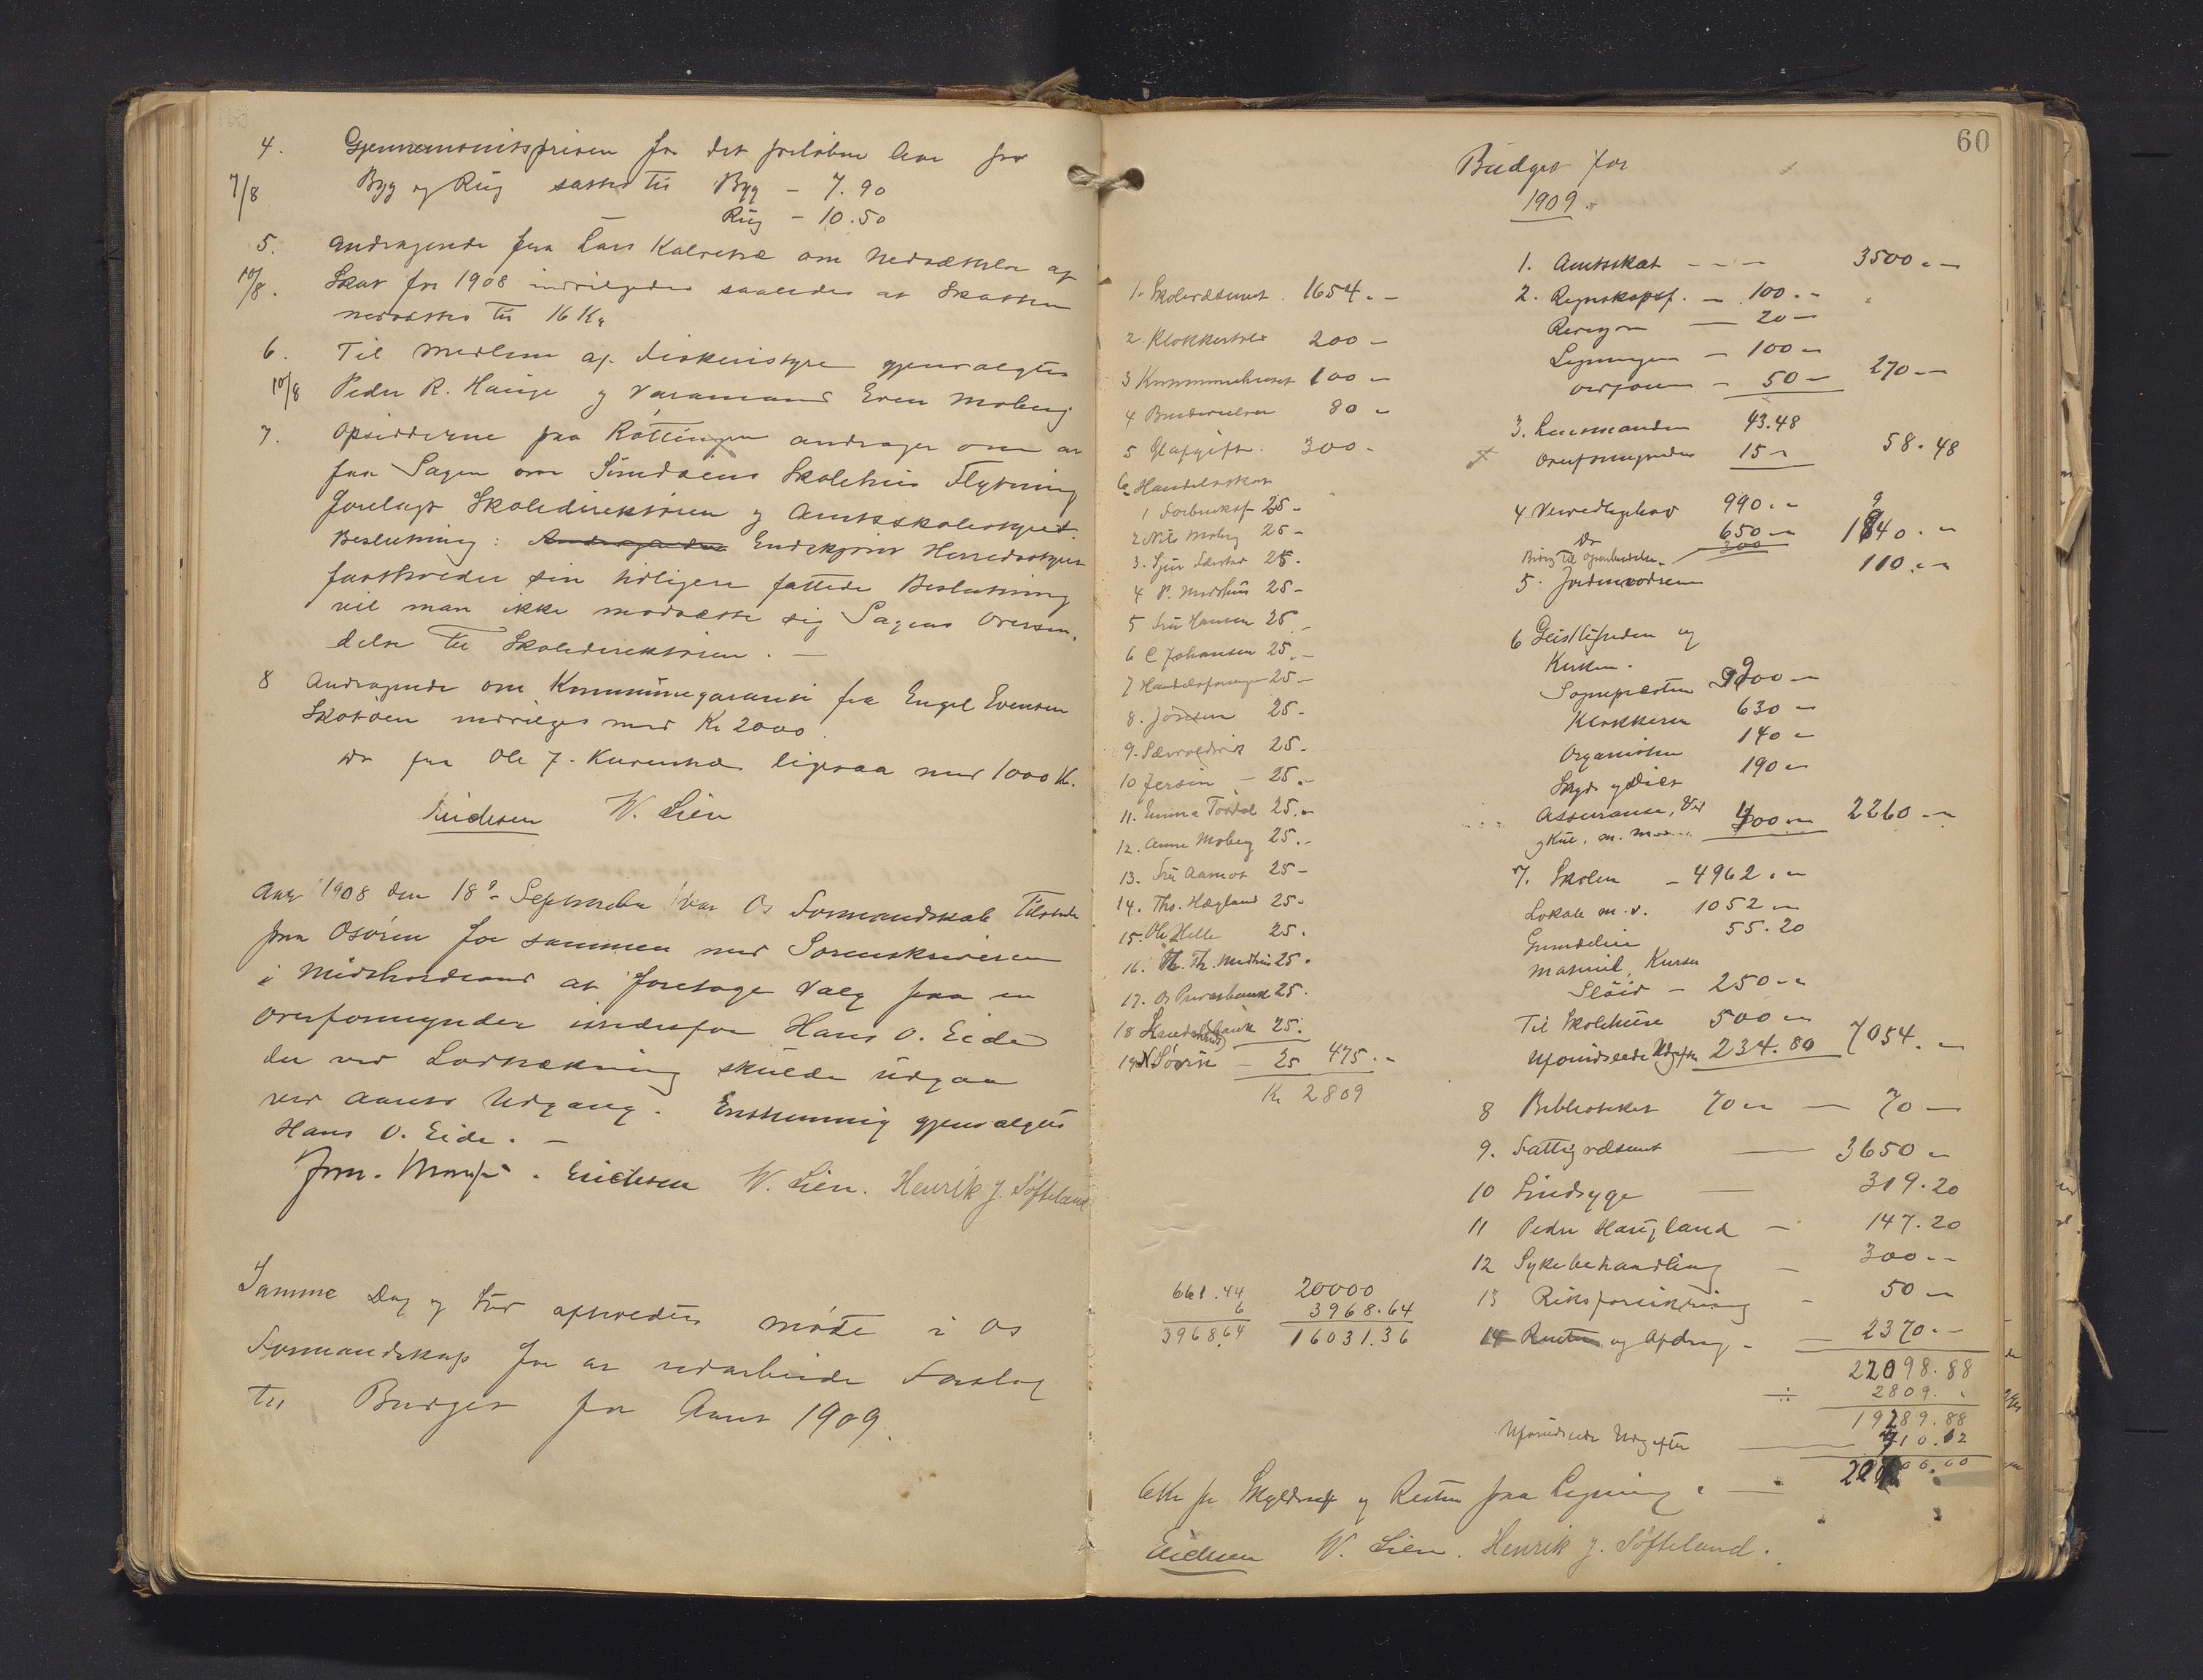 4. Gjennemsnitsprisen for det forløbne Aar for
7/8 Byg og Rug sattes til Byg - 7.90
Rug - 10.50
5. Andragende fra Lars Kalvetræ om Nedsættelse af
10/8. Skat for 1908 indvilgedes saaledes at Skatten
nedsættes til 16 Kr
6. Til Medlem af Fiskeristyre gjenvalgtes
10/8 Peder R. Hauge og Varamand Even Moberg
7. Opsidderne paa Røttingen andrager om at
faa Sagen om Sundøens Skolehus Flytning
forelagt Skoledirektøren og Amtsskolestyret.
Beslutning: Andragendet Endskjønt Herredsstyret
fastholder sin tidligere fattede Beslutning
vil man ikke modsætte sig Sagens Oversen-
delse til Skoledirektøren. —
8 Andragende om Kommunegaranti fra Engel Evensen
Skotøen indvilges med Kr 2000.
Do fra Ole J. Kuventræ ligesaa med 1000 Kr.
Eidesen N. Lien
Aar 1908 den 18de September var Os Formandskab tilstede
paa Osøren for sammen med Sorenskriveren
i Midthordland at foretage Valg paa en
Overformynder istedetfor Hans O. Eide
der ved Lodtrækning skulde udgaa
ved Aarets Udgang. Enstemmig gjenvalgtes
Hans O. Eide. —
Eidesen N. Lien. Henrik J. Søfteland
Samme Dag og Sted afholdtes møde i Os
Formandskap for at udarbeide Forslag
til Budget for Aaret 1909.
60
Budget for
1909.
1. Skolevæsenet. 1654.-
2. Klokkerhold 200 -
3 Kommunehuset 100 -
4 80 -
5 Afgifter. 300 -
6. Handelsskat
1 Forbruksf. 25 -
2 Nils Moberg 25 -
3. Sjur 25.
4 P. Midthus 25 -
5 Fru Hansen 25
6 C Johansen 25.-
7 Handelsforeningen 25 -
8. Jonsen 25 -
9. Sævroldvik 25.
10 Jersin - 25.-
11. Emma Tordal 25.-
12. Anne Moberg 25.-
13. Fru Aamot 25 -
14. Ths. Hægland 25 -
15. Ole Helle 25.
16. Th. Midthus 25.
17. Os Privatbank 25.
18 Landmandsbank 25.
19 N Søvik - 25 475.-
Kr 2809
1. Amtsskat - - - 3500.-
2. Regnskapsf. - 100.-
Revisjon — 20 -
Ligningen - 100 -
Ordføreren - 50 - 270.-
3. Lensmanden 43.48
Overformynder 15 - 58.48
4 Veivedligehold 990.-
Do 650 - 1940.-
Bidrag til Oparbeidelse 300
5. Jordemødrene 110.-
6 Geistligheden og
Kirken.
Sognepresten 900 -
Klokkeren 630 -
Organisten 140 -
Skyds og Diæt 190 -
Assuranse, Ved
og Kul, m. m. 400 - 2260.-
7. Skolen - 4962.-
Lokale m. v. 1052 -
Grundleie 55.20
Materiel, Kurser
Sløid - 250.-
Til Skolehuse 500 -
Uforudseede Udgifter 234.80 7054.-
8 Biblioteket 70 - — 70 -
9. Fattigvæsenet — 3650 -
10 Sindsyge — 319.20
11 Peder Haugland - 147.20
12 Sykebehandling - 300.-
13 Riksforsikring - 50 -
14 Renter og Afdrag - 2370.-
22098.88
÷ 2809.-
19289.88
Uforudseede Udgifter — 710.12
20000.00
661.44 20000
6 3968.64
3968.64 16031.36
6 Kr pr Skyldmark og Resten paa Ligning. —
Eidesen N. Lien. Henrik J. Søfteland.